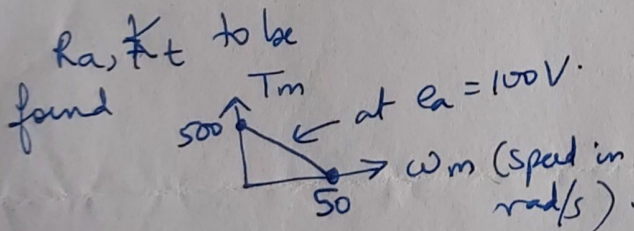 Ra, Kt to be
found
Tm
at ea = 100V.
500
ωm (speed in
rad/s).
50